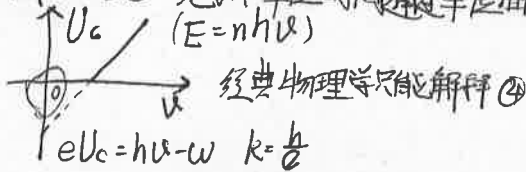 Uc
(E=nhν)
O
ν
经典物理学只能解释④
eUc=hν-w k=h/e